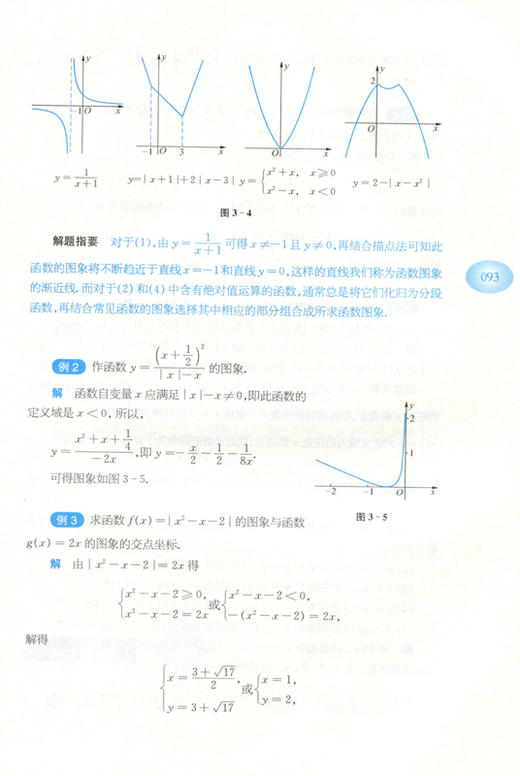 y
y
y
y
2
-1 O x
-1 O 3 x
O x
O x
y=\frac{1}{x+1}
y=|x+1|+2|x-3|
y=\begin{cases}x^2+x, & x≥0\\x^2-x, & x<0\end{cases}
y=2-|x-x^2|
图 3-4
解题指要 对于(1),由 y=\frac{1}{x+1} 可得 x≠-1 且 y≠0,再结合描点法可知此
函数的图象将不断趋近于直线 x=-1 和直线 y=0,这样的直线我们称为函数图象
的渐近线.而对于(2)和(4)中含有绝对值运算的函数,通常总是将它们化归为分段
函数,再结合常见函数的图象选择其中相应的部分组合成所求函数图象.
093
例 2 作函数 y=\frac{(x+\frac{1}{2})^2}{|x|-x} 的图象.
解 函数自变量 x 应满足 |x|-x≠0,即此函数的
定义域是 x<0,所以,
y=\frac{x^2+x+\frac{1}{4}}{-2x},即 y=-\frac{x}{2}-\frac{1}{2}-\frac{1}{8x}.
可得图象如图 3-5.
y
2
1
-2 -1 O x
图 3-5
例 3 求函数 f(x)=|x^2-x-2| 的图象与函数
g(x)=2x 的图象的交点坐标.
解 由 |x^2-x-2|=2x 得
\begin{cases}x^2-x-2≥0,\\x^2-x-2=2x\end{cases} 或 \begin{cases}x^2-x-2<0,\\-(x^2-x-2)=2x,\end{cases}
解得
\begin{cases}x=\frac{3+\sqrt{17}}{2},\\y=3+\sqrt{17}\end{cases} 或 \begin{cases}x=1,\\y=2,\end{cases}